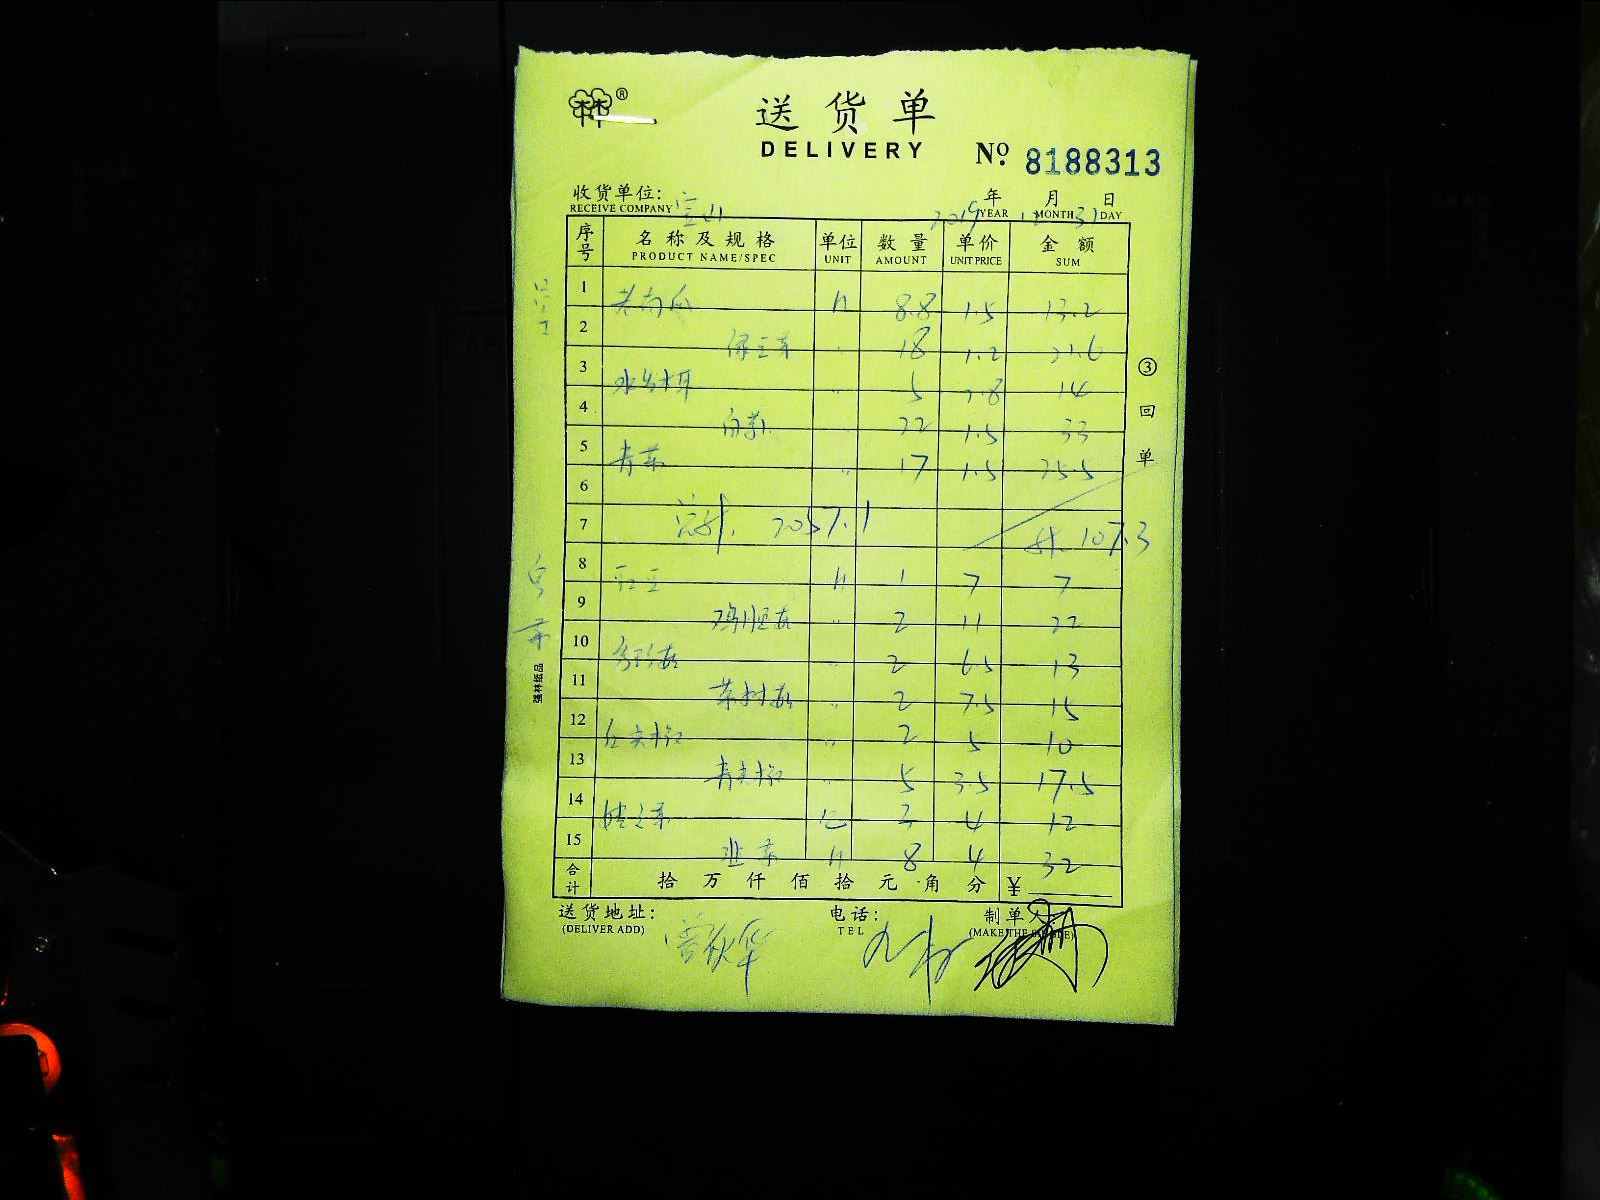 林®
送货单
DELIVERY
No. 8188313
收货单位: 宝山 2019年 12月 31日
RECEIVE COMPANY YEAR MONTH DAY
序号 名称及规格 单位 数量 单价 金额
PRODUCT NAME/SPEC UNIT AMOUNT UNIT PRICE SUM
1 老南瓜 8.8 1.5 13.2
2 绿豆芽 " 18 1.2 21.6
3 水发木耳 " 5 2.8 14
4 22 1.5 33
5 青菜 " 17 1.5 25.5
6
7 2057.1 107.3
8 红豆 1 7 7
9 鸡腿菇 " 2 11 22
10 秀珍菇 " 2 6.5 13
11 茶树菇 " 2 7.5 15
12 红尖椒 " 2 5 10
13 青尖椒 " 5 3.5 17.5
14 豌豆苗 3 4 12
15 韭菜 8 4 32
合计 拾 万 仟 佰 拾 元 角 分 ¥
送货地址: 电话: 制单人:
(DELIVER ADD) TEL (MAKE THE
③ 回单
强林纸品